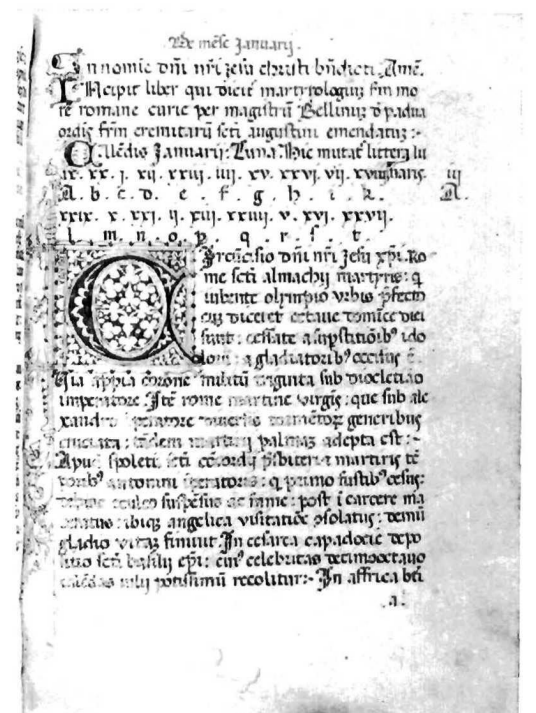 De mēse Januarii.
In nomīe dn̄i nr̄i Jesu christi bn̄dicti. Amē.
Incipit liber qui dicit̄ martyrologiuȝ scd̄m mo
rē romane curie per magistrū Bellinuȝ d̄ padua
ordīs fr̄m eremitarū scti augustini emendatuȝ :-
Callēdis Januarii: Luna. Hic mutat̄ litterȝ lu
ix. xx. i. xii. xxiii. iiii. xv. xxvi. vii. xviii naris. iii
A. b. c. d. e. f. g. h. i. k. A.
xxix. x. xxi. ii. xiii. xxiiii. v. xvi. xxvii.
l. m. n. o. p. q. r. s. t.
Circūcisio dn̄i nr̄i Jesu xp̄i. Ro
me scti almachii martyris: q
iubente olympio vrbis p̄fecto
cuȝ diceret octaue domīce diei
sunt: cessate a sup̄stitiōibꝰ ido
loꝝ: a gladiatoribꝰ occisus ē.
Via appia corone militū triginta sub diocletiāo
imperatore. Itē rome martine virgīs: que sub ale
xandro īperatore diuersis tormētoꝝ generibus
cruciata: tandem martirii palmaȝ adepta est:-
Apud spoletū scti cōcordii p̄sbiteri ⁊ martiris tē
poribꝰ antonini īperatoris: q primo fustibꝰ cesus:
dehinc eculeo suspēsus ac sanie: post ī carcere ma
ceratus: ibiqȝ angelica visitatiōe cōsolatus: demū
gladio vitaȝ finiuit. In cesarea capadocie depo
sitio scti basilii ep̄i: cuiꝰ celebritas decimooctauo
calēdas iulii potissimū recolitur:- In affrica bt̄i
a.